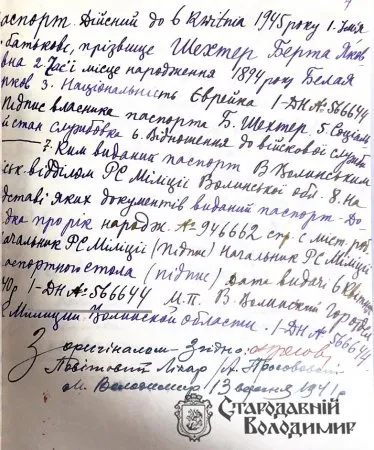 7
аспорт. Дійсний до 6 Квітня 1945 року 1. Імя
батькове, прізвище Шехтер Берта Яков
вна 2. Час і місце народження 1894 року Белая
рков 3. Національність Єврейка 1-ДН № 566644
Підпис власника паспорта Б. Шехтер 5. Соціаль
й стан службовка 6. Відношення до військової служб
7. Ким виданий паспорт В. Волинським
ськ. відділом РС Міліціі Волинської обл. 8. На
дставі яких документів виданий паспорт - До
дка про рік народж. № 946662
ачальник РС Міліціі (підпис) Начальник РС Міліціі
аспортного стола (підпис) Дата видачі 6 Квітня
40 р 1-ДН № 566644 М.П. В. Волинский
Милиции Волинской области. 1-ДН № 566644
З оригіналом згідно:
Повітовий Лікар /А.
м. Володимир 13 1941 р
Стародавній
Володимир